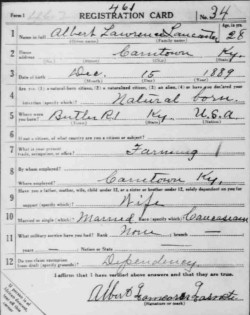 Form 1 461
REGISTRATION CARD No. 34
1 Name in full Albert Lawrence Lancaster Age, in yrs. 28
(Given name) (Family name)
2 Home address Carntown Ky.
3 Date of birth Dec. 15 1889
(Month) (Day) (Year)
4 Are you (1) a natural-born citizen, (2) a naturalized citizen, (3) an alien, (4) or have you declared your intention (specify which)? Natural born
5 Where were you born? Butler R1 Ky. U.S.A
6 If not a citizen, of what country are you a citizen or subject?
7 What is your present trade, occupation, or office? Farming
8 By whom employed?
Where employed? Carntown Ky.
9 Have you a father, mother, wife, child under 12, or a sister or brother under 12, solely dependent on you for support (specify which)? Wife
10 Married or single (which)? Married Race (specify which)? Caucasian
11 What military service have you had? Rank None ; branch
years ; Nation or State
12 Do you claim exemption from draft (specify grounds)? Dependency
I affirm that I have verified above answers and that they are true.
Albert
(Signature or mark)